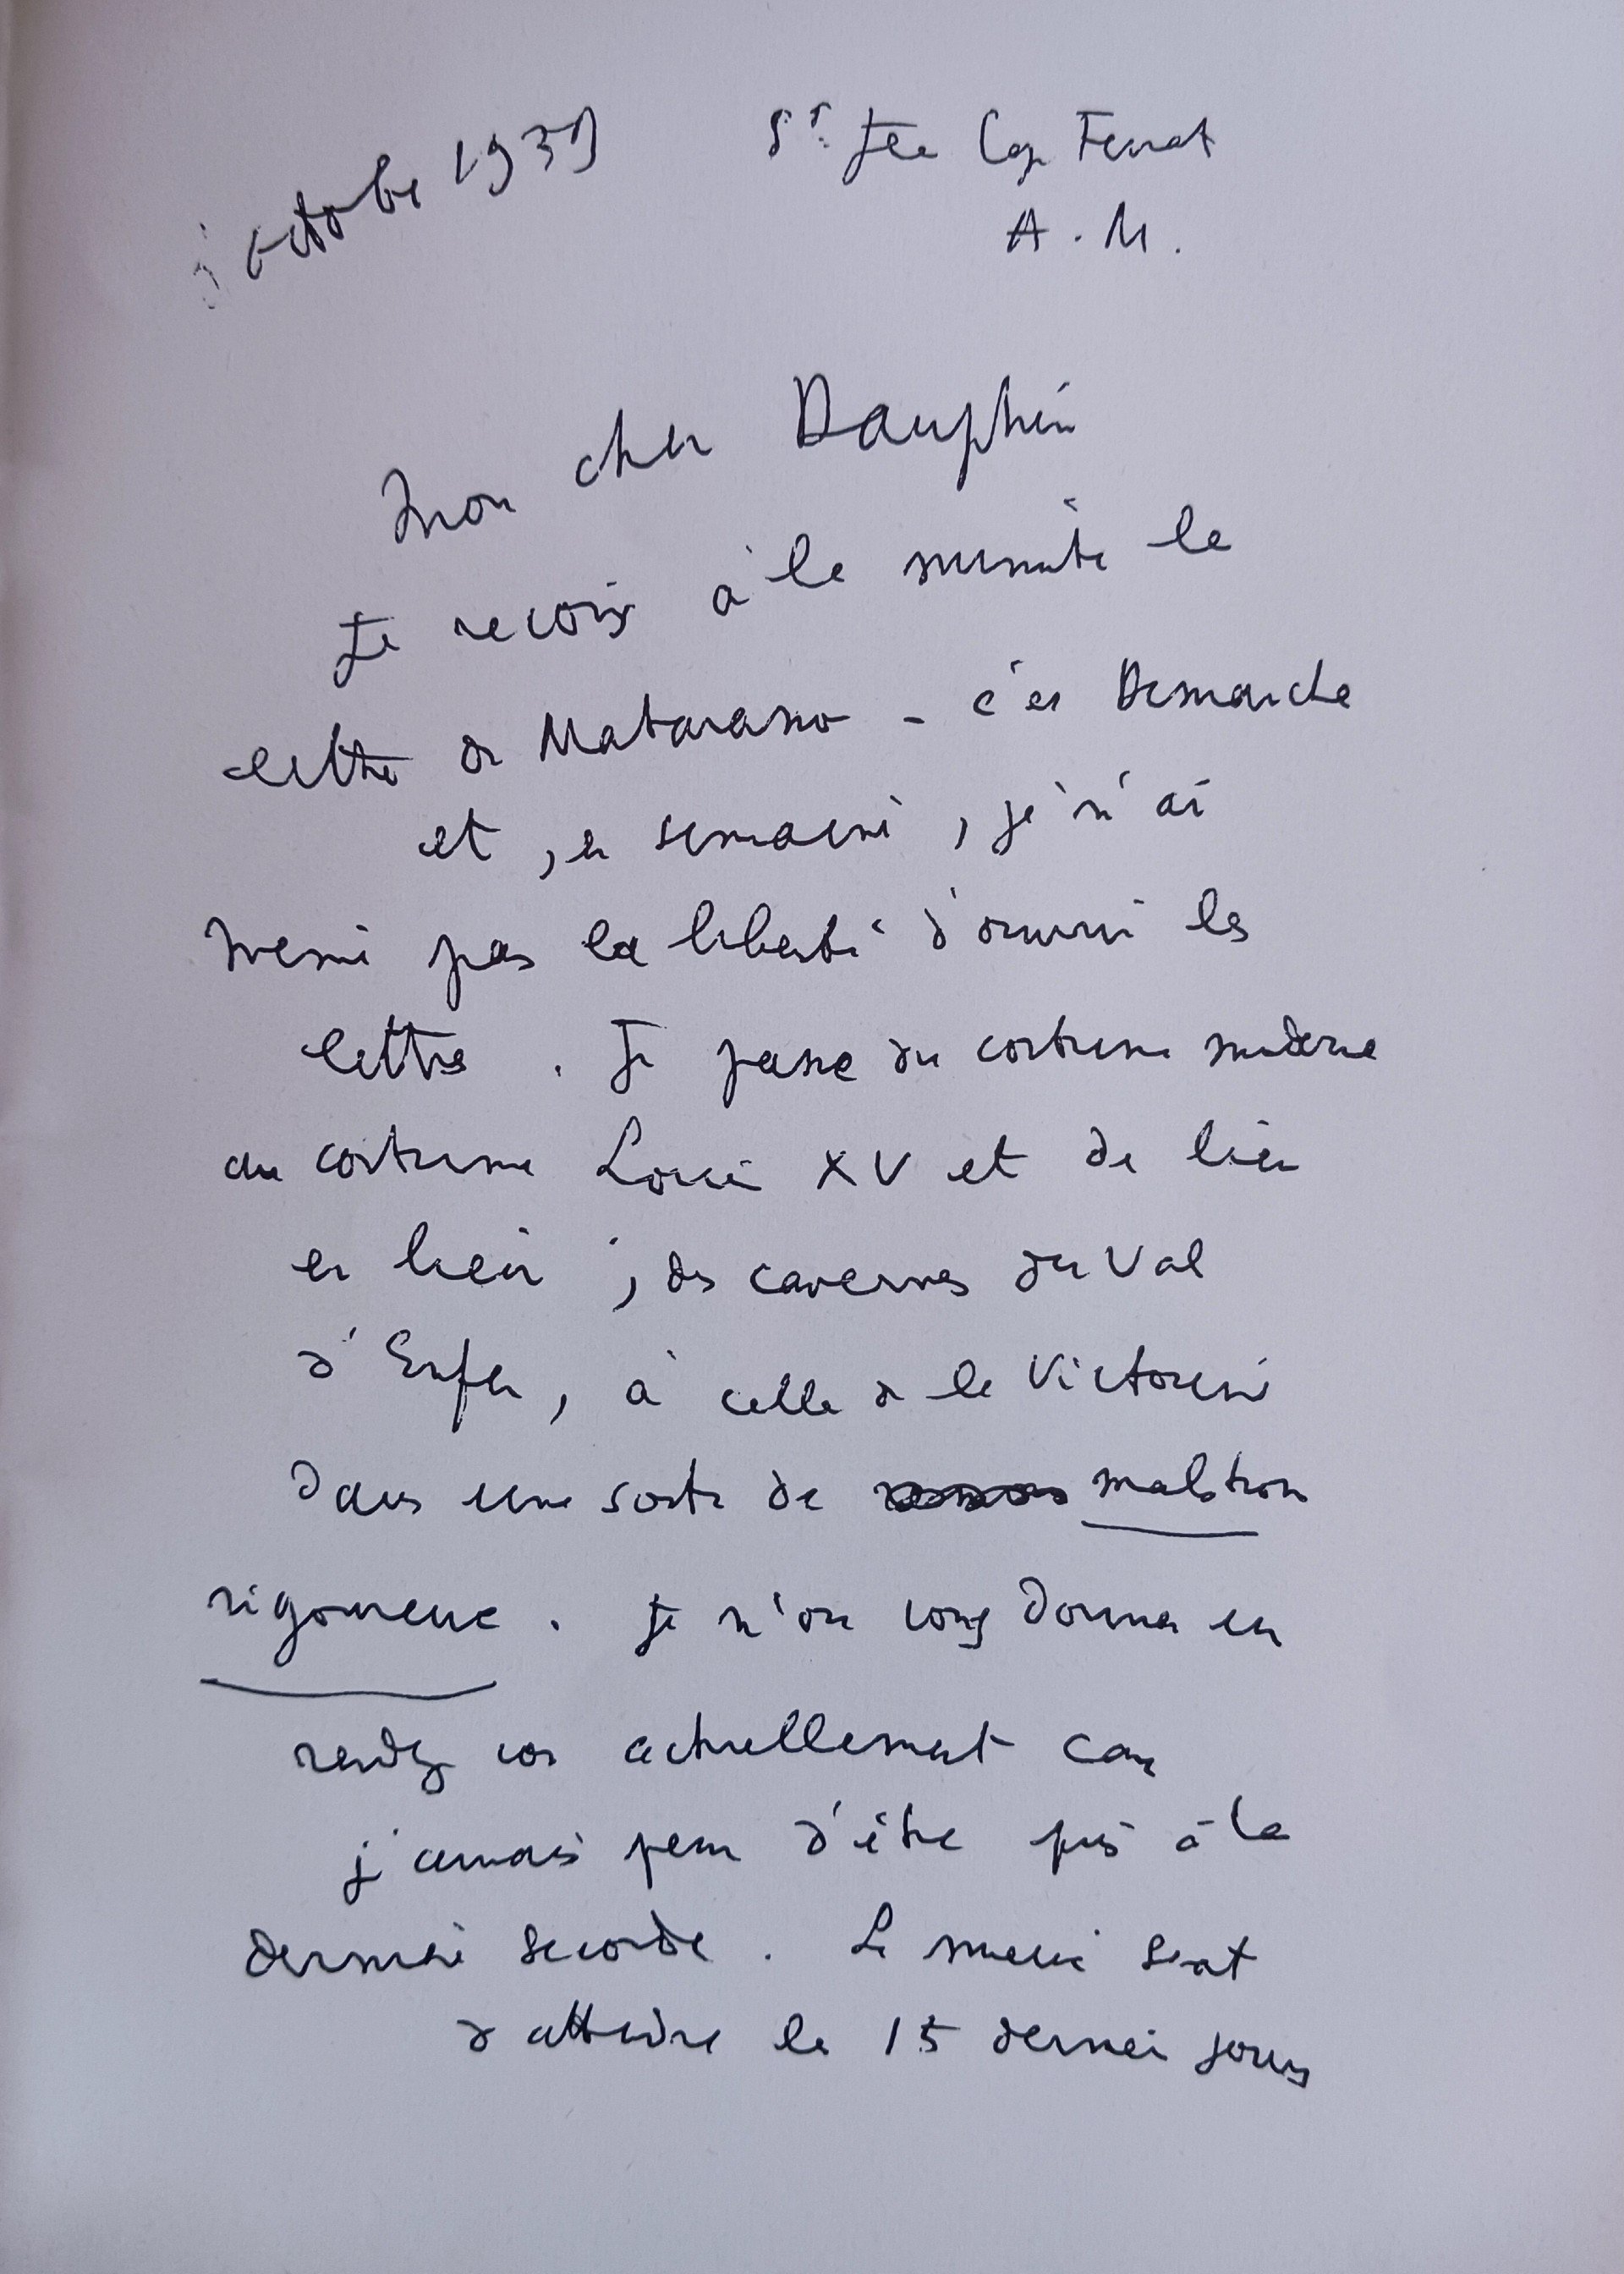 octobre 1959 St Jean Cap Ferrat
A. M.
Mon cher Dauphin
Je reçois à la minute la
lettre de Matarasso - c'est Dimanche
et, en semaine, je n'ai
même pas la liberté d'ouvrir les
lettres. Je passe du costume moderne
au costume Louis XV et de lieu
en lieu, des cavernes du Val
d'Enfer, à celle de la Victorine
dans une sorte de malstrom
rigoureux. Je n'ose vous donner un
rendez vous actuellement car
j'aurais peur d'être pris à la
dernière seconde. Le mieux serait
d'attendre les 15 derniers jours